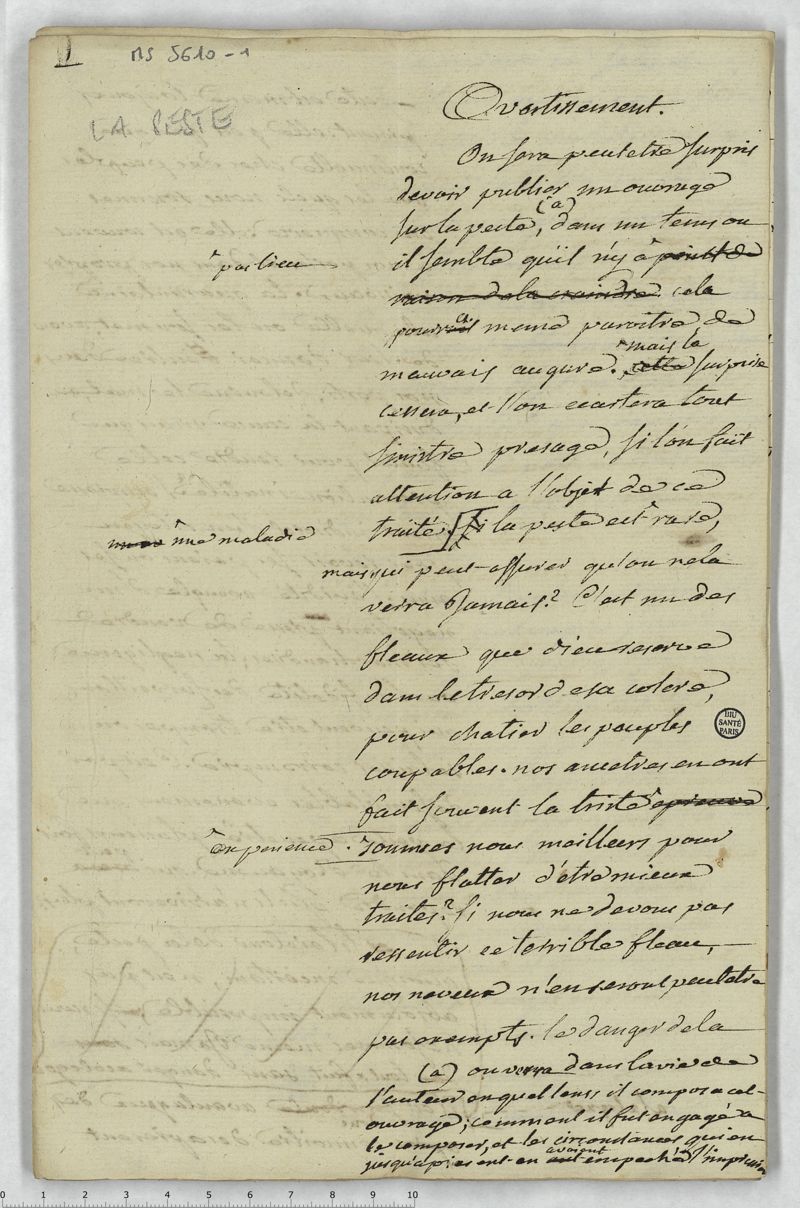 1
MS 5610-1
LA PESTE
Avertissement.
On sera peutetre surpris
devoir publier un ouvrage
sur la peste, (a) dans un tems ou
il semble qu'il n'y a point de
^ pas lieu
raison de la craindre cela
pourrait meme paroitre de
mauvais augure. ^ mais la cette surprise
cessera, et l'on ecartera tout
sinistre presage, si l'on fait
attention a l'objet de ce
traité. Si la peste est ^ rare,
^ une maladie
mais qui peut assurer qu'on ne la
verra Jamais? C'est un des
fleaux que dieu reserve
dans le tresor de sa colere,
pour chatier les peuples
BIU
SANTÉ
PARIS
coupables. nos ancetres en ont
fait souvent la triste ^ epreuve
^ experience.
sommes nous meilleurs pour
nous flatter d'étre mieux
traités? si nous ne devons pas
ressentir ce terrible fleau,
nos neveux n'en seront peutetre
pas exempts. le danger de la
(a) on verra dans la vie de
l'auteur en quel tems il composa cet
ouvrage; comment il fut engagé a
le composer, et les circonstances qui en
jusqu'a present en avoient ont empeché l'impression
0 1 2 3 4 5 6 7 8 9 10